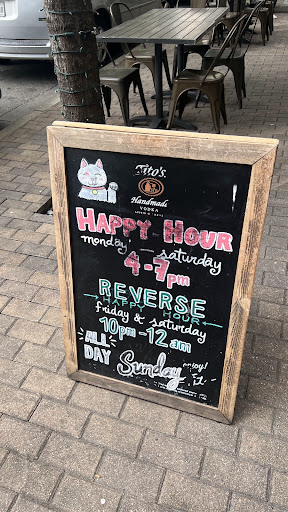 Tito's
Handmade
VODKA
HAPPY HOUR
monday saturday
4-7pm
REVERSE
HAPPY HOUR
friday & saturday
10pm-12am
ALL DAY Sunday enjoy!